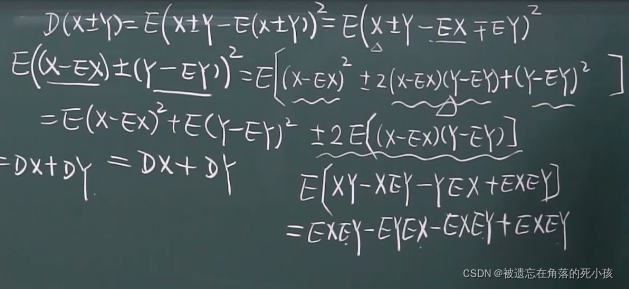 D(X±Y)=E(X±Y-E(X±Y))²=E(X±Y-EX∓EY)²
E((X-EX)±(Y-EY))²=E[(X-EX)²±2(X-EX)(Y-EY)+(Y-EY)²]
=E(X-EX)²+E(Y-EY)²±2E[(X-EX)(Y-EY)]
=DX+DY=DX+DY
E[XY-XEY-YEX+EXEY]
=EXEY-EYEX-EXEY+EXEY
CSDN @被遗忘在角落的死小孩